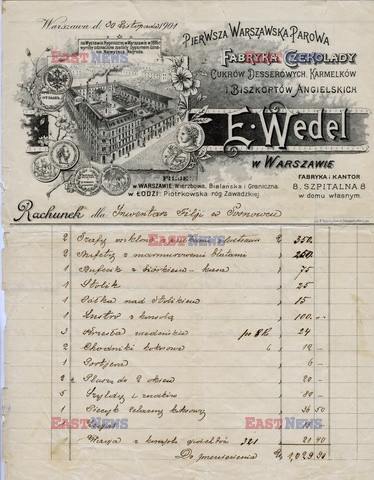 Warszawa d. 30 Listopada 1901
PIERWSZA WARSZAWSKA PAROWA
FABRYKA CZEKOLADY
CUKRÓW DESSEROWYCH, KARMELKÓW
I BISZKOPTÓW ANGIELSKICH
E. Wedel
W WARSZAWIE
FABRYKA i KANTOR
8, SZPITALNA 8
w domu własnym.
FILJE:
w WARSZAWIE: Wierzbowa, Bielańska i Graniczna
w ŁODZI: Piotrkowska róg Zawadzkiej.
Rachunek dla Inwentarz Filji w
2 Szafy 350.
2 Bufety z marmurowemi blatami 260.
1 Bufecik z kasa 75
1 Stolik 25
1 Półka nad Stolikiem 15
1 Lustro z konsolą 100.—
3 Krzesła po 8 R 24
2 Chodniki kokosowe 6 12 —
1 Portjera 6 —
2 Plusze do 2 okien 20 —
5 Szyldy i 80 —
1 Piecyk żelazny koksowy 36 50
1
1 Waga z 321 21 40
Do przeniesienia R. 1,029.90
EAST NEWS
EAST NEWS
EAST NEWS
EAST NEWS